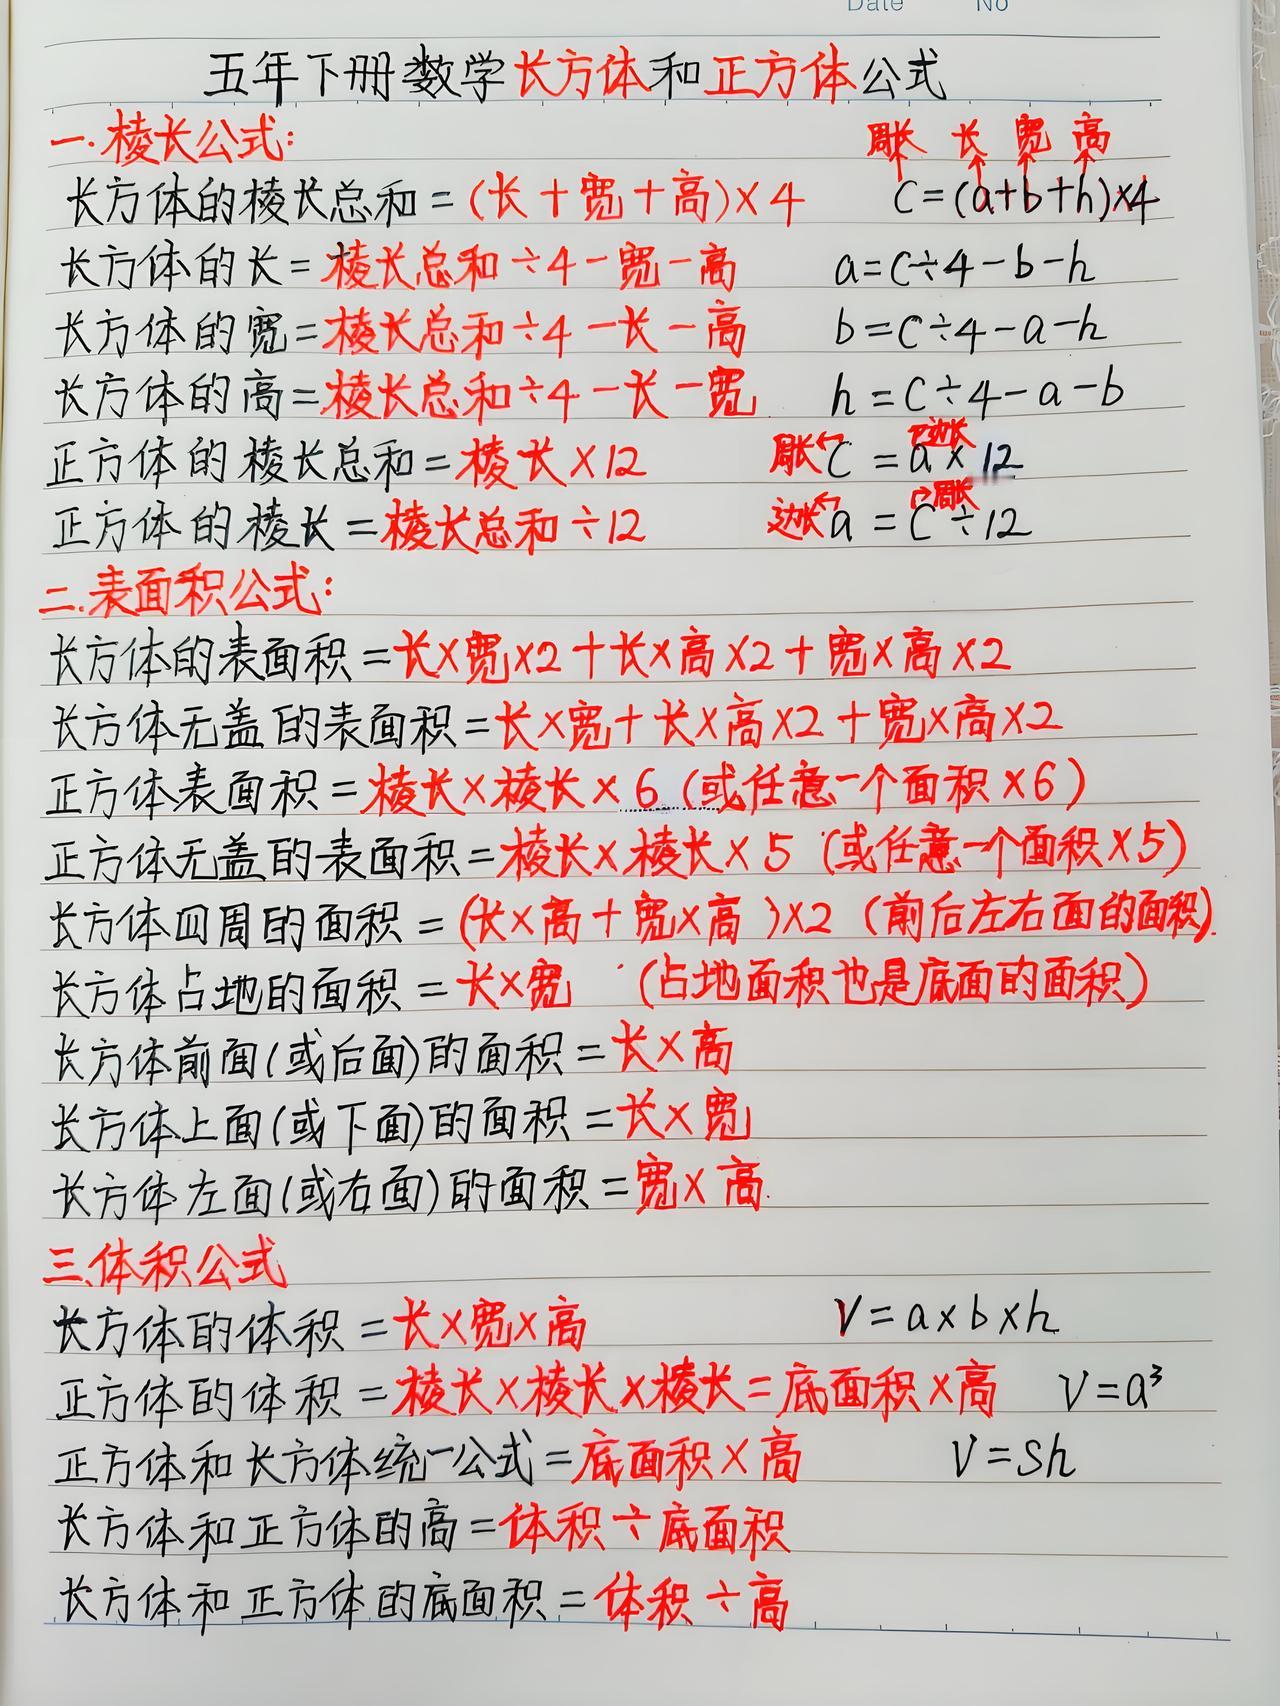 Date No
五年下册数学长方体和正方体公式
一.棱长公式:
周长 长 宽 高
长方体的棱长总和=(长+宽+高)×4 C=(a+b+h)×4
长方体的长=棱长总和÷4-宽-高 a=C÷4-b-h
长方体的宽=棱长总和÷4-长-高 b=C÷4-a-h
长方体的高=棱长总和÷4-长-宽 h=C÷4-a-b
边长
正方体的棱长总和=棱长×12 周长 C=a×12
周长
正方体的棱长=棱长总和÷12 边长 a=C÷12
二.表面积公式:
长方体的表面积=长×宽×2+长×高×2+宽×高×2
长方体无盖的表面积=长×宽+长×高×2+宽×高×2
正方体表面积=棱长×棱长×6(或任意一个面积×6)
正方体无盖的表面积=棱长×棱长×5(或任意一个面积×5)
长方体四周的面积=(长×高+宽×高)×2(前后左右面的面积).
长方体占地的面积=长×宽 (占地面积也是底面的面积)
长方体前面(或后面)的面积=长×高
长方体上面(或下面)的面积=长×宽
长方体左面(或右面)的面积=宽×高
三.体积公式
长方体的体积=长×宽×高 V=a×b×h
正方体的体积=棱长×棱长×棱长=底面积×高 V=a³
正方体和长方体统一公式=底面积×高 V=Sh
长方体和正方体的高=体积÷底面积
长方体和正方体的底面积=体积÷高